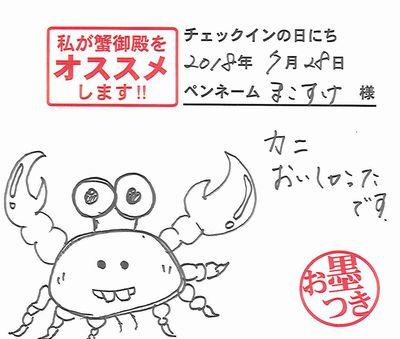 私が蟹御殿を
オススメ
します!!
チェックインの日にち
2018年 7月 28日
ペンネーム まこすけ 様
カニ
おいしかった
です
お墨つき